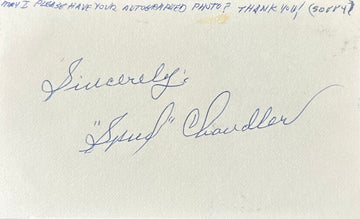 MAY I PLEASE HAVE YOUR AUTOGRAPHED PHOTO? THANK YOU! (SORRY)
Sincerely,
"Spud" Chandler